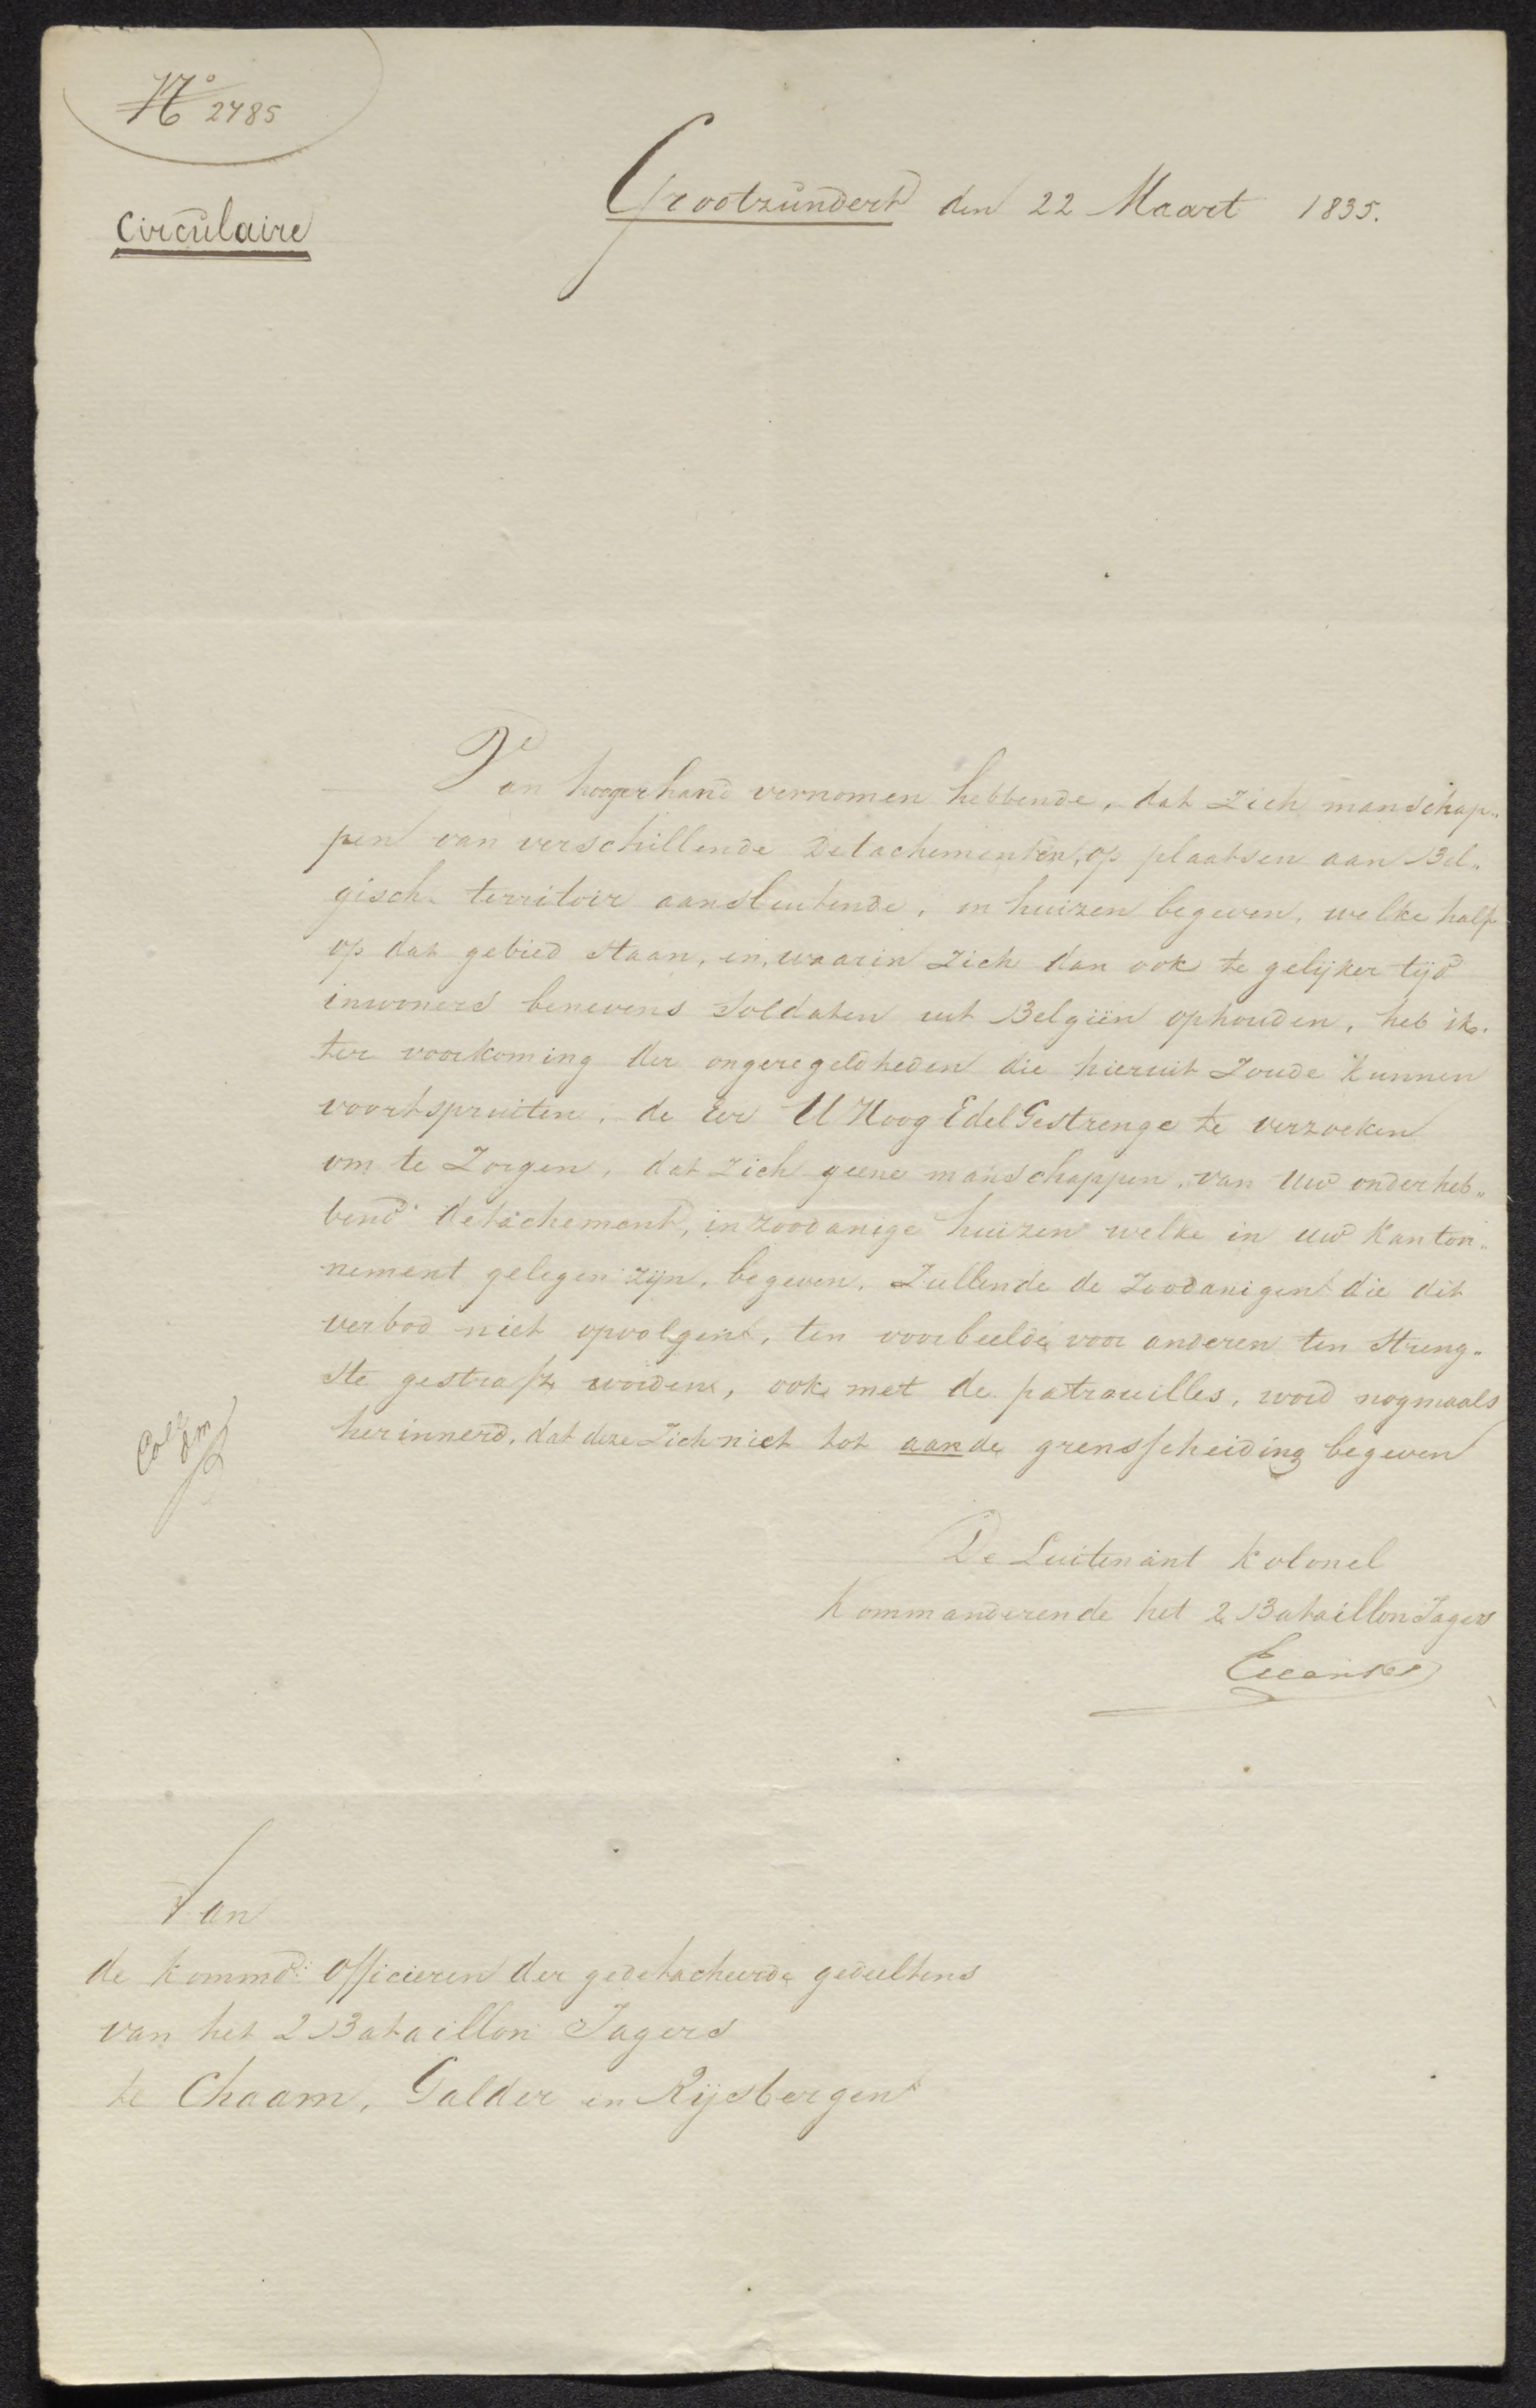 No 2785
Circulaire
Grootzundert den 22 Maart 1835.
Van hoogerhand vernomen hebbende, dat zich manschap„
pen van verschillende Detachementen, op plaatsen aan Bel„
gisch territoir aansluitende, in huizen begeven, welke half
op dat gebied staan, en, waarin zich dan ook te gelijker tijd
inwoners benevens Soldaten uit Belgiën ophouden, heb ik.
ter voorkoming der ongeregeldheden die hieruit zoude kunnen
voortspruiten, de Eer U Hoog Edel Gestrenge te verzoeken
om te Zorgen, dat zich geene manschappen, van Uw onderheb„
bend detachement, in zoodanige huizen welke in uw Kanton„
nement gelegen zijn, begeven, Zullende de Zoodanigen die dit
verbod niet opvolgen, ten voorbeelde voor anderen ten streng„
ste gestraft worden, ook met de patrouilles, word nogmaals
herinnerd, dat deze Zich niet tot aan de grensscheiding begeven
De Luitenant Kolonel
Kommanderende het 2 Bataillon Jagers
Aan
de Kommd: Officieren der gedetacheerde gedeeltens
van het 2 Bataillon Jagers
te Chaam, Galder en Rijsbergen